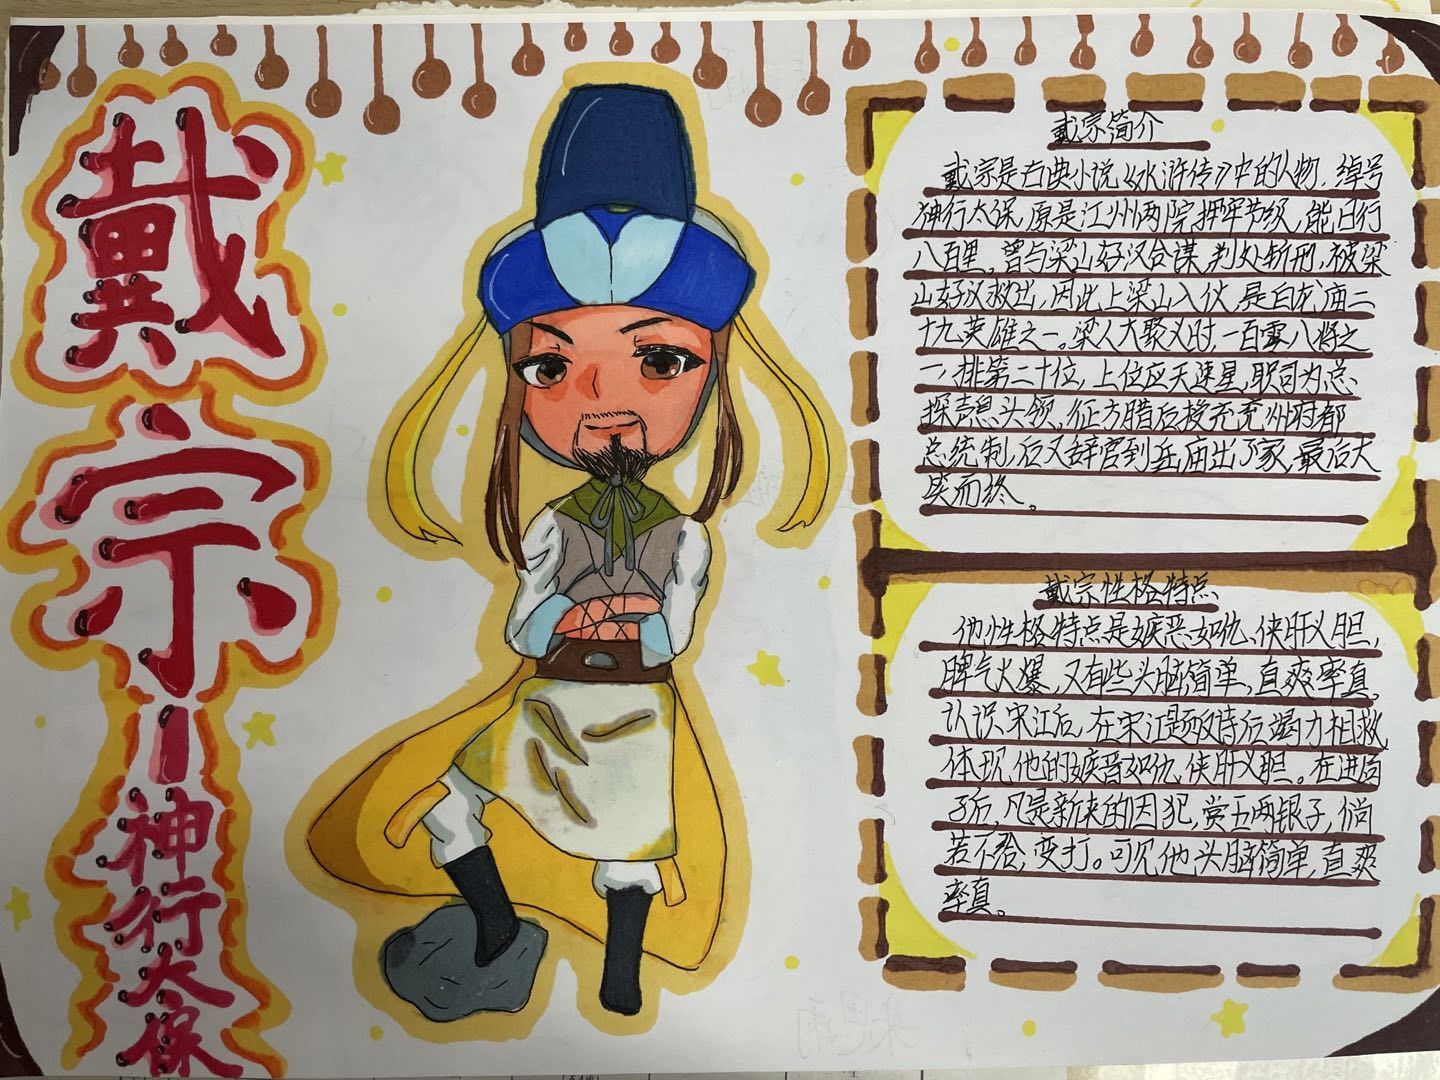 戴宗
神行太保
戴宗简介
戴宗是古典小说《水浒传》中的人物,绰号
神行太保,原是江州两院押牢节级,能日行
八百里。曾与梁山好汉合谋,判处斩刑,被梁
山好汉救出,因此上梁山入伙,是白龙庙二
十九英雄之一。梁人大聚义时,一百零八将之
一,排第二十位,上位应天速星,职司为总
探声息头领。征方腊后授充兖州府都
总统制,后又辞官到岳庙出了家,最后大
笑而终。
戴宗性格特点
他性格特点是嫉恶如仇、侠肝义胆,
脾气火爆,又有些头脑简单,直爽率真。
认识宋江后,在宋江题反诗后竭力相救,
体现他的嫉恶如仇,侠肝义胆。在进
子后,凡是新来的囚犯,赏五两银子,倘
若不给,变打。可见他头脑简单,直爽
率真。